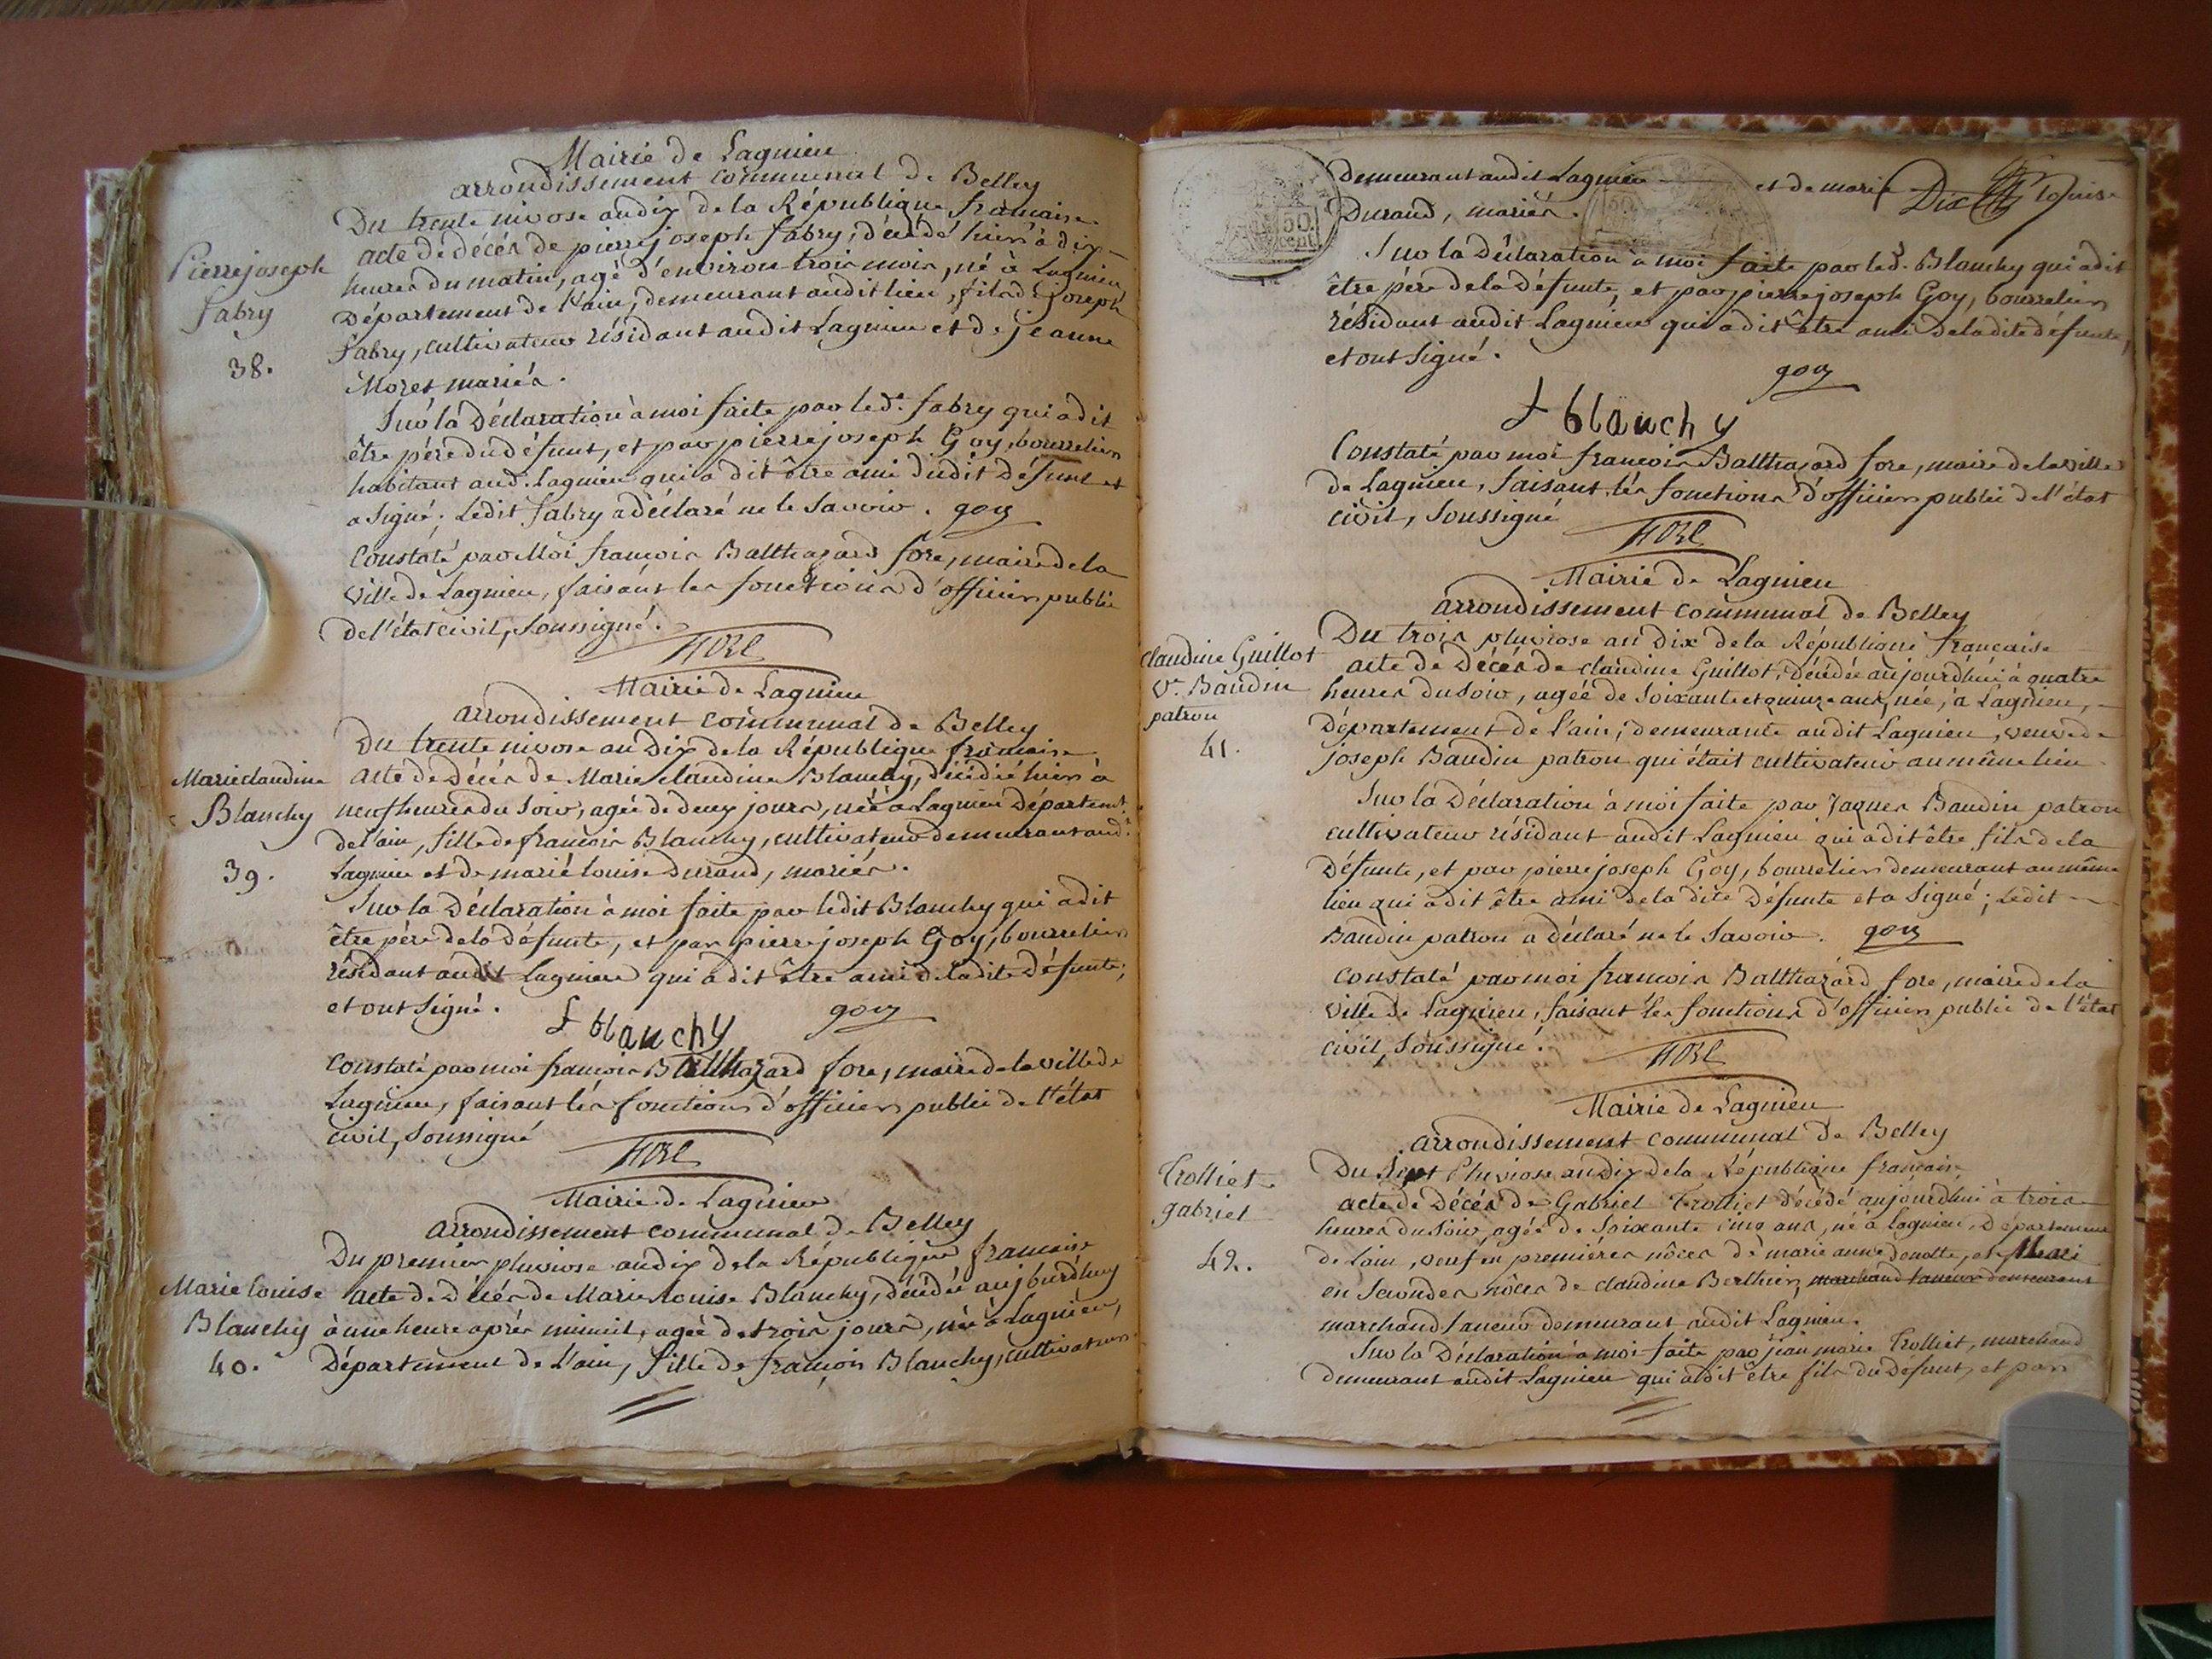 Mairie de Lagnieu
arrondissement communal de Belley
Du trente nivose an dix de la République francaise
Pierre joseph
fabry
38.
acte de décés de pierre joseph fabry, décédé hier à dix
heures du matin, agé d'environ trois mois, né à Lagnieu
Département de l'ain, demeurant audit lieu, fils de joseph
fabry, cultivateur résidant audit Lagnieu et de jeanne
Moret mariés.
Sur la Déclaration à moi faite par led. fabry qui a dit
être pére du défunt, et par pierre joseph Goy, bourrelier
habitant aud. Lagnieu qui a dit être ami dudit défunt et
a signé; Ledit fabry a déclaré ne le savoir. goy
Constaté par Moi françois Balthazard fore, maire de la
ville de Lagnieu, faisant les fonctions d'officier public
de l'état civil, soussigné.
FORE
Mairie de Lagnieu
arrondissement communal de Belley
Du trente nivose an Dix de la République francaise
Marie claudine
Blanchy
39.
acte de Décés de Marie claudine Blanchy, décédée hier à
neuf heures du soir, agée de deux jours, née à Lagnieu Départemt.
de l'ain, fille de françois Blanchy, cultivateur demeurant aud.
Lagnieu et de marie louise durand, mariés.
Sur la Déclaration à moi faite par ledit Blanchy qui a dit
être pére de la défunte, et par pierre joseph Goy, bourrelier
résidant audit Lagnieu qui a dit être ami de ladite défunte;
et ont signé.
f blanchy goy
Constaté par moi françois Balthazard fore, maire de la ville de
Lagnieu, faisant les fonctions d'officier public de l'état
civil, soussigné
FORE
Mairie de Lagnieu
arrondissement communal de Belley
Du premier pluviose an dix de la République francaise
Marie louise
Blanchy
40.
acte de Décés de Marie Louise Blanchy, décédée aujourdhuy
à une heure aprés minuit, agée de trois jours, née à Lagnieu,
Département de L'ain, fille de françois Blanchy, cultivateur
50 cent
Demeurant audit Lagnieu et de marie louise
Dix
Durand, mariés.
Sur la Déclaration à moi faite par led. Blanchy qui a dit
être pére de la défunte, et par pierre joseph Goy, bourrelier
résidant audit Lagnieu qui a dit être ami de ladite défunte,
et ont signé.
goy
f blanchy
Constaté par moi françois Balthazard fore, maire de la ville
de Lagnieu, faisant les fonctions d'officier public de l'état
civil, soussigné
FORE
Mairie de Lagnieu
arrondissement communal de Belley
Du trois pluviose an dix de la République française
claudine Guillot
Ve. Baudin
patron
41.
acte de Décés de claudine Guillot, décédée aujourdhui à quatre
heures du soir, agée de soixante et quinze ans, née, à Lagnieu,
Département de l'ain, demeurante audit Lagnieu, veuve de
joseph Baudin patron qui était cultivateur au même lieu
Sur la Déclaration à moi faite par Jaques Baudin patron
cultivateur résidant audit Lagnieu qui a dit être fils de la
Défunte, et par pierre joseph Goy, bourrelier demeurant au même
lieu qui a dit être ami de la dite Défunte et a signé; ledit
Baudin patron a déclaré ne le savoir. goy
constaté par moi francois Balthazard fore, maire de la
ville de Lagnieu, faisant les fonctions d'officier public de l'état
civil, soussigné.
FORE
Mairie de Lagnieu
arrondissement communal de Belley
Du sept Pluviose an Dix de la République française
Trolliet
gabriel
42.
acte de Décés de Gabriel Trolliet décédé aujourdhui à trois
heures du soir, agée de soixante cinq ans, né à Lagnieu, Département
de l'ain, veuf en premiéres nôces de marie anne et Mari
en secondes nôces de claudine Berthier, marchand taneur demeurant
marchand taneur demeurant audit Lagnieu.
Sur la Déclaration à moi faite par jean marie Trolliet, marchand
demeurant audit Lagnieu qui a dit être fils du Défunt, et par